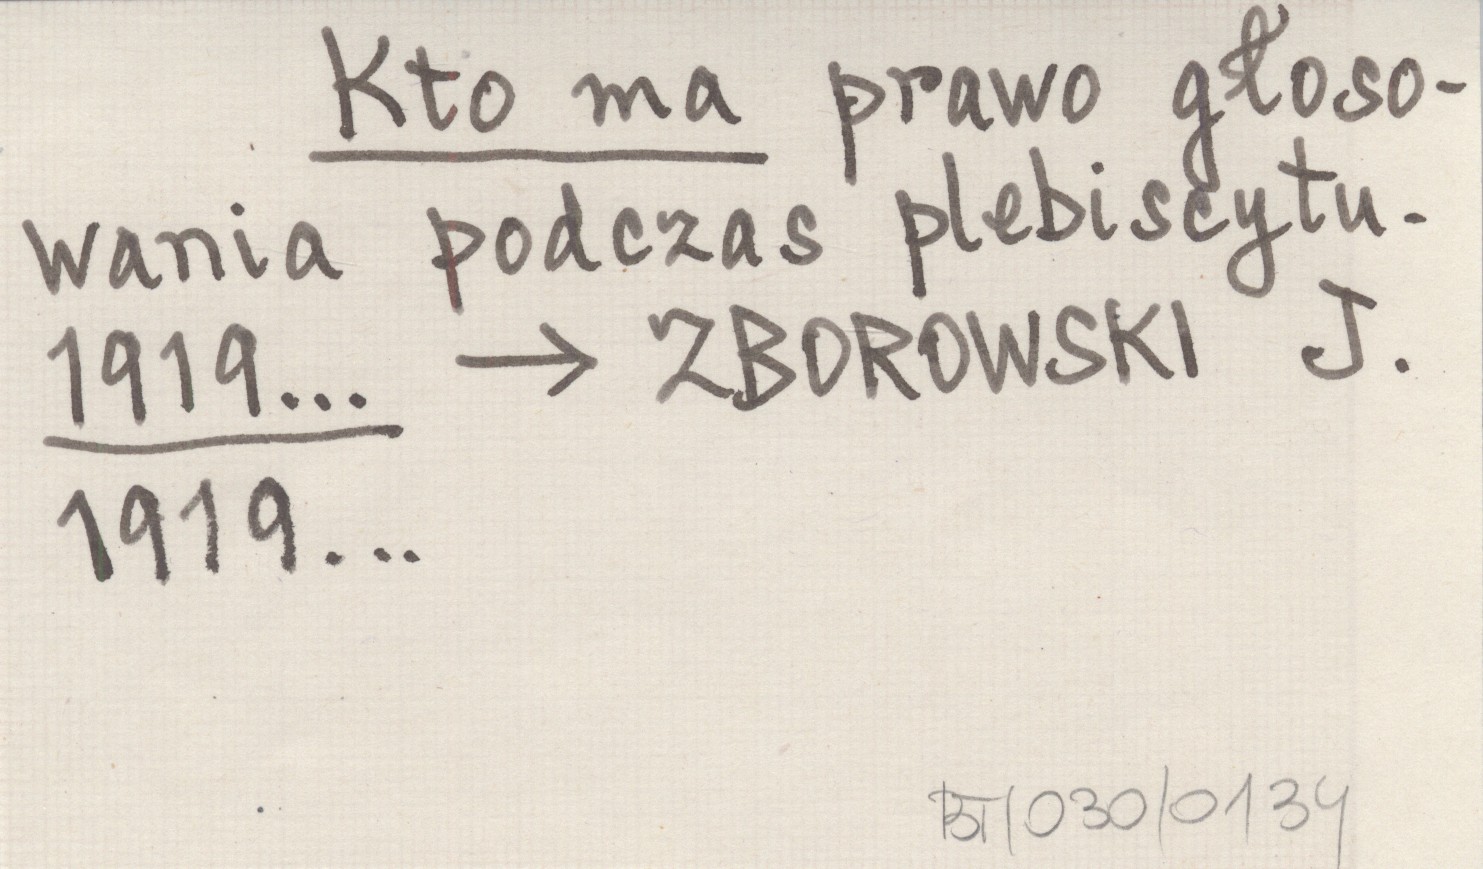 Kto ma prawo głoso-
wania podczas plebiscytu.
1919... → ZBOROWSKI J.
1919...
/030/0134